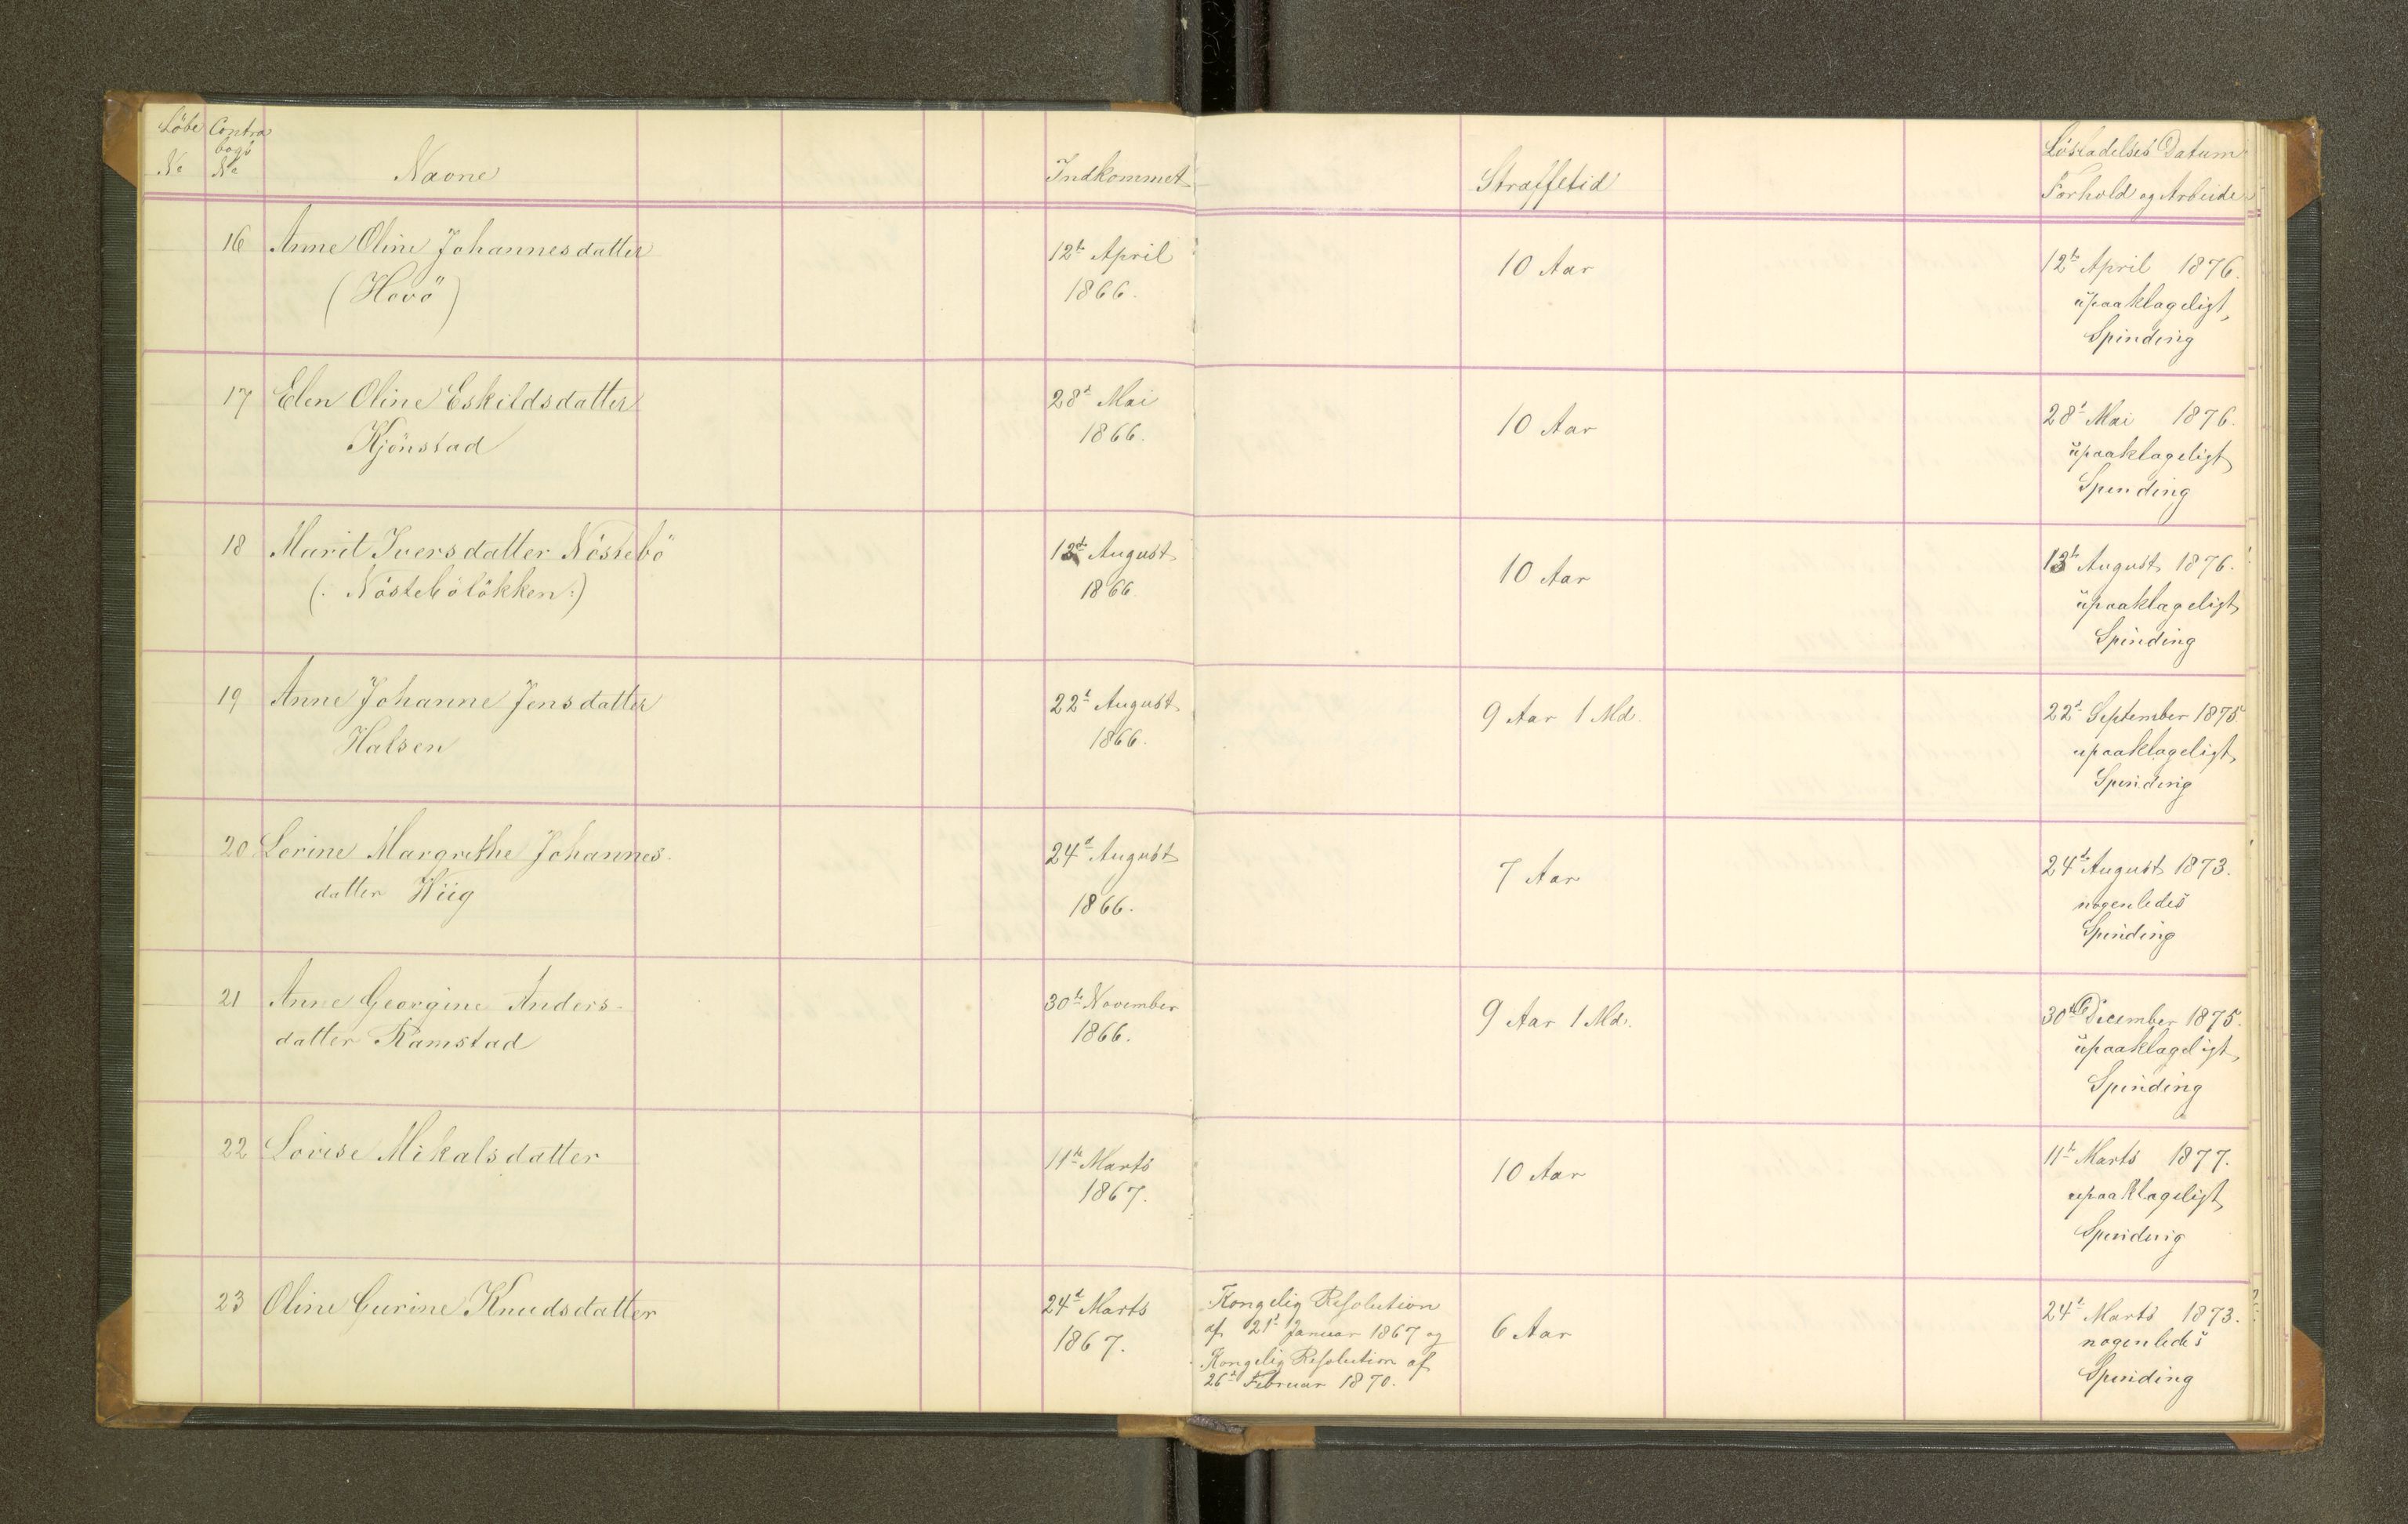 Løbe Contra
bogs
No No
Navne
Indkommet
Straffetid
Løsladelses Datum
Forhold og Arbeide
16 Anne Oline Johannesdatter
(Hovö)
12te April
1866.
10 Aar
12te April 1876.
upaaklageligt,
Spinding
17 Elen Oline Eskildsdatter
Kjönstad
28de Mai
1866.
10 Aar
28de Mai 1876.
upaaklageligt
Spinding
18 Marit Iversdatter Nöstebö
(: Nöstebölökken :)
13de August
1866.
10 Aar
13de August 1876.
upaaklageligt
Spinding
19 Anne Johanne Jensdatter
Halsen
22de August
1866.
9 Aar 1 Md.
22de September 1875
upaaklageligt,
Spinding
20 Lorine Margrethe Johannes-
datter Wiig
24de August
1866.
7 Aar
24de August 1873.
nogenledes
Spinding
21 Anne Georgine Anders-
datter Ramstad
30te November
1866.
9 Aar 1 Md.
30te December 1875.
upaaklageligt,
Spinding
22 Lovise Mikalsdatter
11te Marts
1867.
10 Aar
11te Marts 1877.
upaaklageligt,
Spinding
23 Oline Gurine Knudsdatter
24de Marts
1867.
Kongelig Resolution
af 21de Januar 1867 og
Kongelig Resolution af
26de Februar 1870.
6 Aar
24de Marts 1873.
nogenledes
Spinding